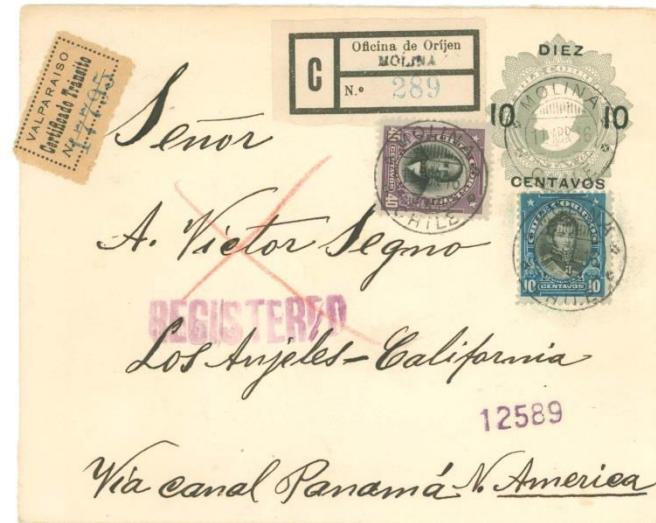 VALPARAISO
Certificado Tránsito
Nº 17795
C
Oficina de Oríjen
MOLINA
N.º 289
DIEZ
10 10
CENTAVOS
MOLINA
CHILE
MOLINA
CHILE
40
CHILE CORREOS
10 CENTAVOS 10
Señor
A. Victor Segno
REGISTERED
Los Anjeles - California
12589
Via canal Panamá N. America